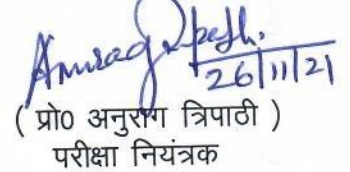 Anurag Tripathi
26/11/21
( प्रो0 अनुराग त्रिपाठी )
परीक्षा नियंत्रक